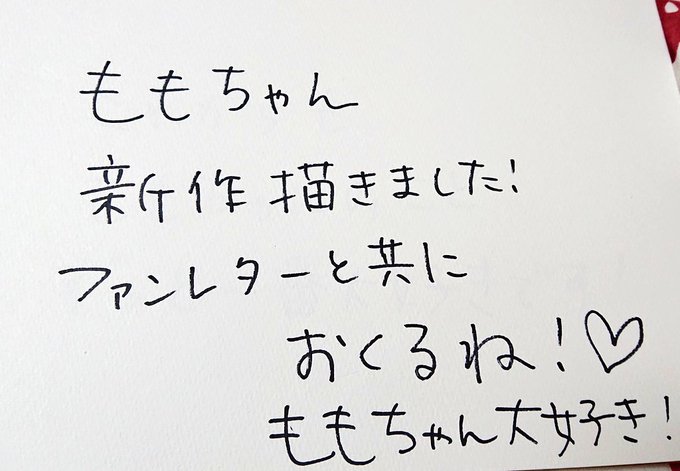 ももちゃん
新作描きました!
ファンレターと共に
おくるね!♡
ももちゃん大好き!